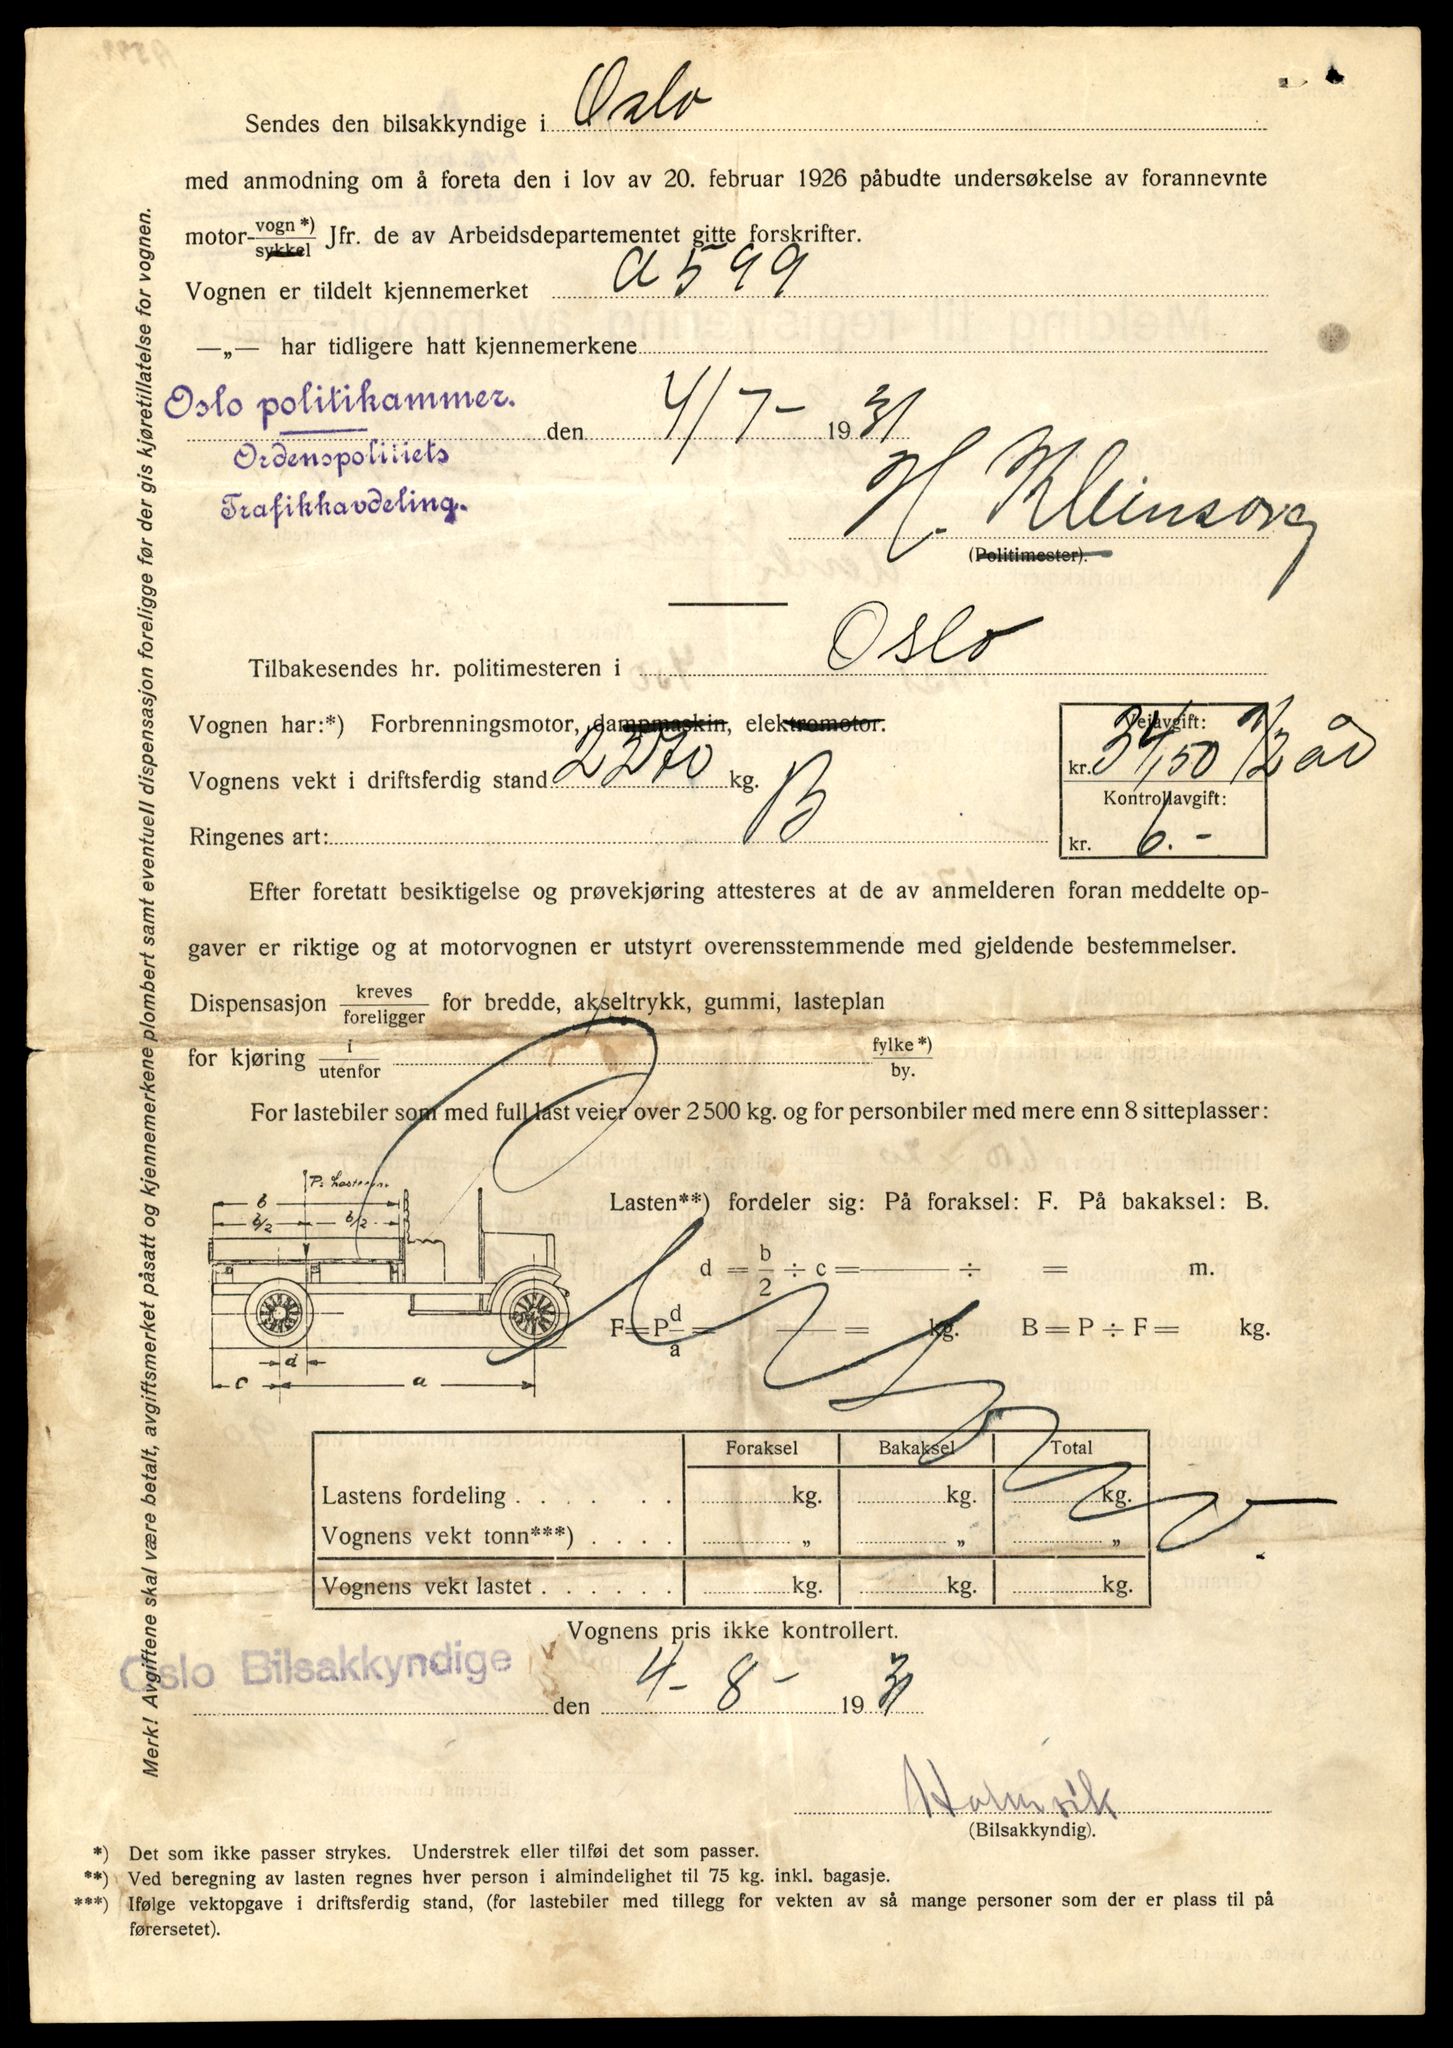 Sendes den bilsakkyndige i Oslo
med anmodning om å foreta den i lov av 20. februar 1926 påbudte undersøkelse av forannevnte
motor- vogn*) / sykkel Jfr. de av Arbeidsdepartementet gitte forskrifter.
Vognen er tildelt kjennemerket A 599
—„— har tidligere hatt kjennemerkene
Oslo politikammer.
den 4/7- 1931
Ordenspolitiets
Trafikkavdeling.
H. Kleinsorg
(Politimester).
Tilbakesendes hr. politimesteren i Oslo
Vognen har:*) Forbrenningsmotor, dampmaskin, elektromotor.
Vognens vekt i driftsferdig stand kg.
Ringenes art: B
Veiavgift:
kr. 34,50 1/2 år
Kontrollavgift:
kr. 6.-
Efter foretatt besiktigelse og prøvekjøring attesteres at de av anmelderen foran meddelte op-
gaver er riktige og at motorvognen er utstyrt overensstemmende med gjeldende bestemmelser.
Dispensasjon kreves / foreligger for bredde, akseltrykk, gummi, lasteplan
for kjøring i / utenfor fylke*) / by.
For lastebiler som med full last veier over 2500 kg. og for personbiler med mere enn 8 sitteplasser:
P= Lasten
b
b/2 b/2
d
c a
Lasten**) fordeler sig: På foraksel: F. På bakaksel: B.
d = b/2 ÷ c = —— ÷ = m.
F = P d/a = —— = kg. B = P ÷ F = kg.
Foraksel Bakaksel Total
Lastens fordeling . . . . . . kg. kg. kg.
Vognens vekt tonn***) . . . . „ „ „
Vognens vekt lastet . . . . . . kg. kg. kg.
Vognens pris ikke kontrollert.
Oslo Bilsakkyndige
den 4- 8- 1931
Holmsvik
(Bilsakkyndig).
*) Det som ikke passer strykes. Understrek eller tilføi det som passer.
**) Ved beregning av lasten regnes hver person i almindelighet til 75 kg. inkl. bagasje.
***) Ifølge vektopgave i driftsferdig stand, (for lastebiler med tillegg for vekten av så mange personer som der er plass til på
førersetet).
Merk! Avgiftene skal være betalt, avgiftsmerket påsatt og kjennemerkene plombert samt eventuell dispensasjon foreligge før der gis kjøretillatelse for vognen.